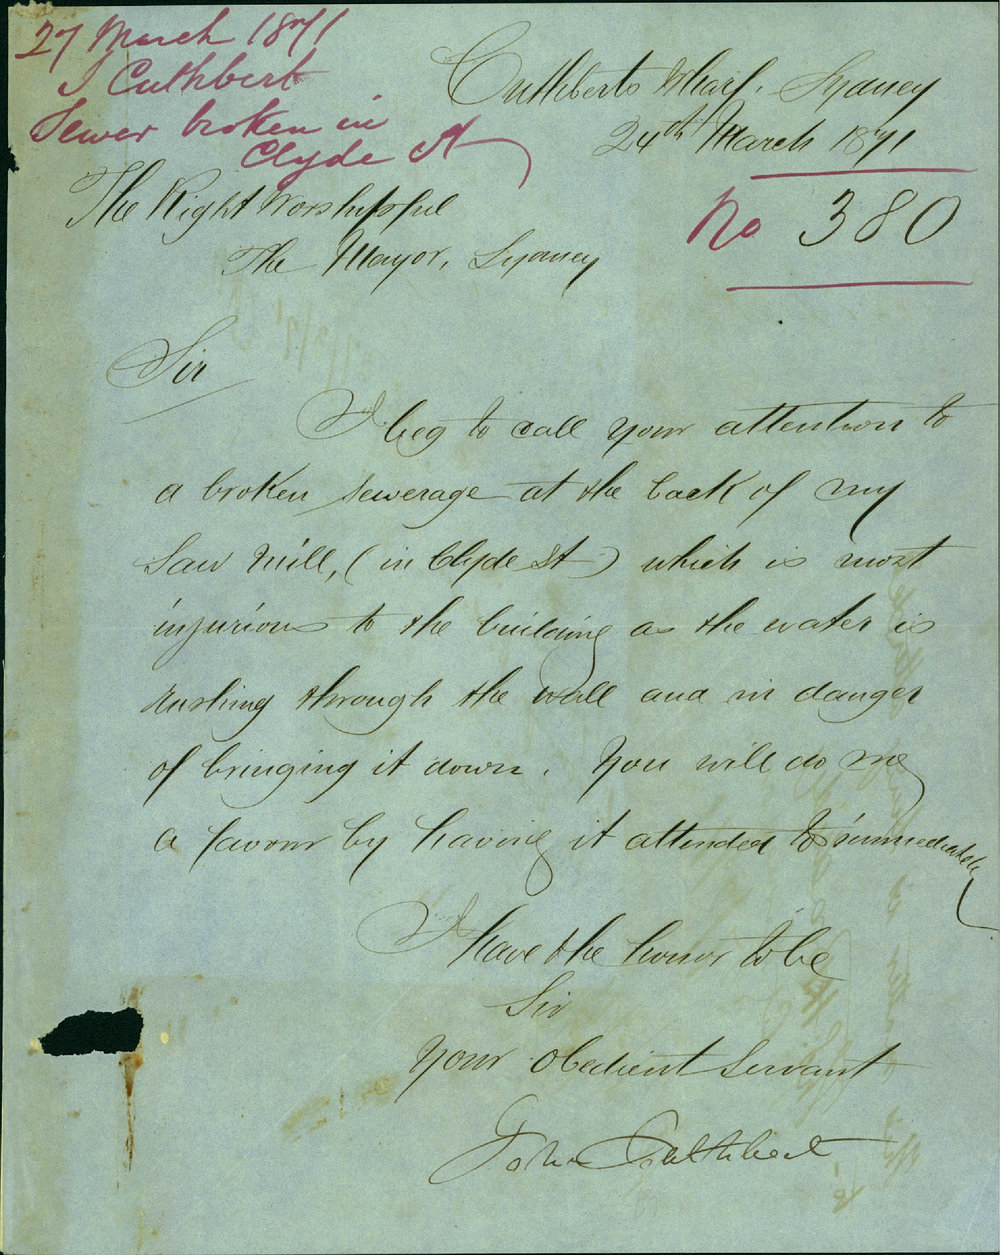 27 March 1871
J Cuthbert
Sewer broken in
Clyde St
Cuthberts Wharf, Sydney
24th March 1871
No 380
The Right Worshipful
The Mayor, Sydney
Sir
I beg to call your attention to
a broken sewerage at the back of my
Saw Mill, (in Clyde St) which is most
injurious to the building as the water is
rushing through the wall and in danger
of bringing it down. You will do me
a favour by having it attended to immediately
I have the honor to be
Sir
Your obedient Servant
John Cuthbert